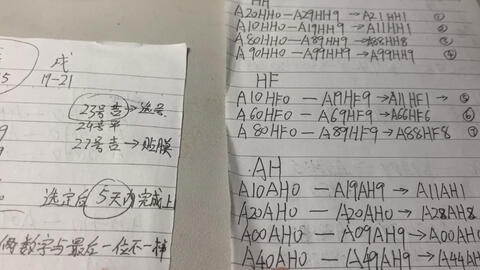 戌
17-21
23号吉→选号
24号平
27号吉→贴膜
选定后5天内完成上
偶数字与最后一位不一样
HH
A20HH0—A29HH9→A21HH1
A10HH0—A19HH9→A11HH1
A80HH0—A89HH9→A88HH8
A90HH0—A99HH9→A99HH9 ④
HF
A10HF0—A19HF9→A11HF1→⑤
A60HF0—A69HF9→A66HF6 ⑥
A80HF0—A89HF9→A88HF8 ⑦
AH
A10AH0—A19AH9→A11AH1
A20AH0—A20AH0→A28AH8
A00AH0—A09AH9→A00AH0
A40AH0—A49AH9→A44AH